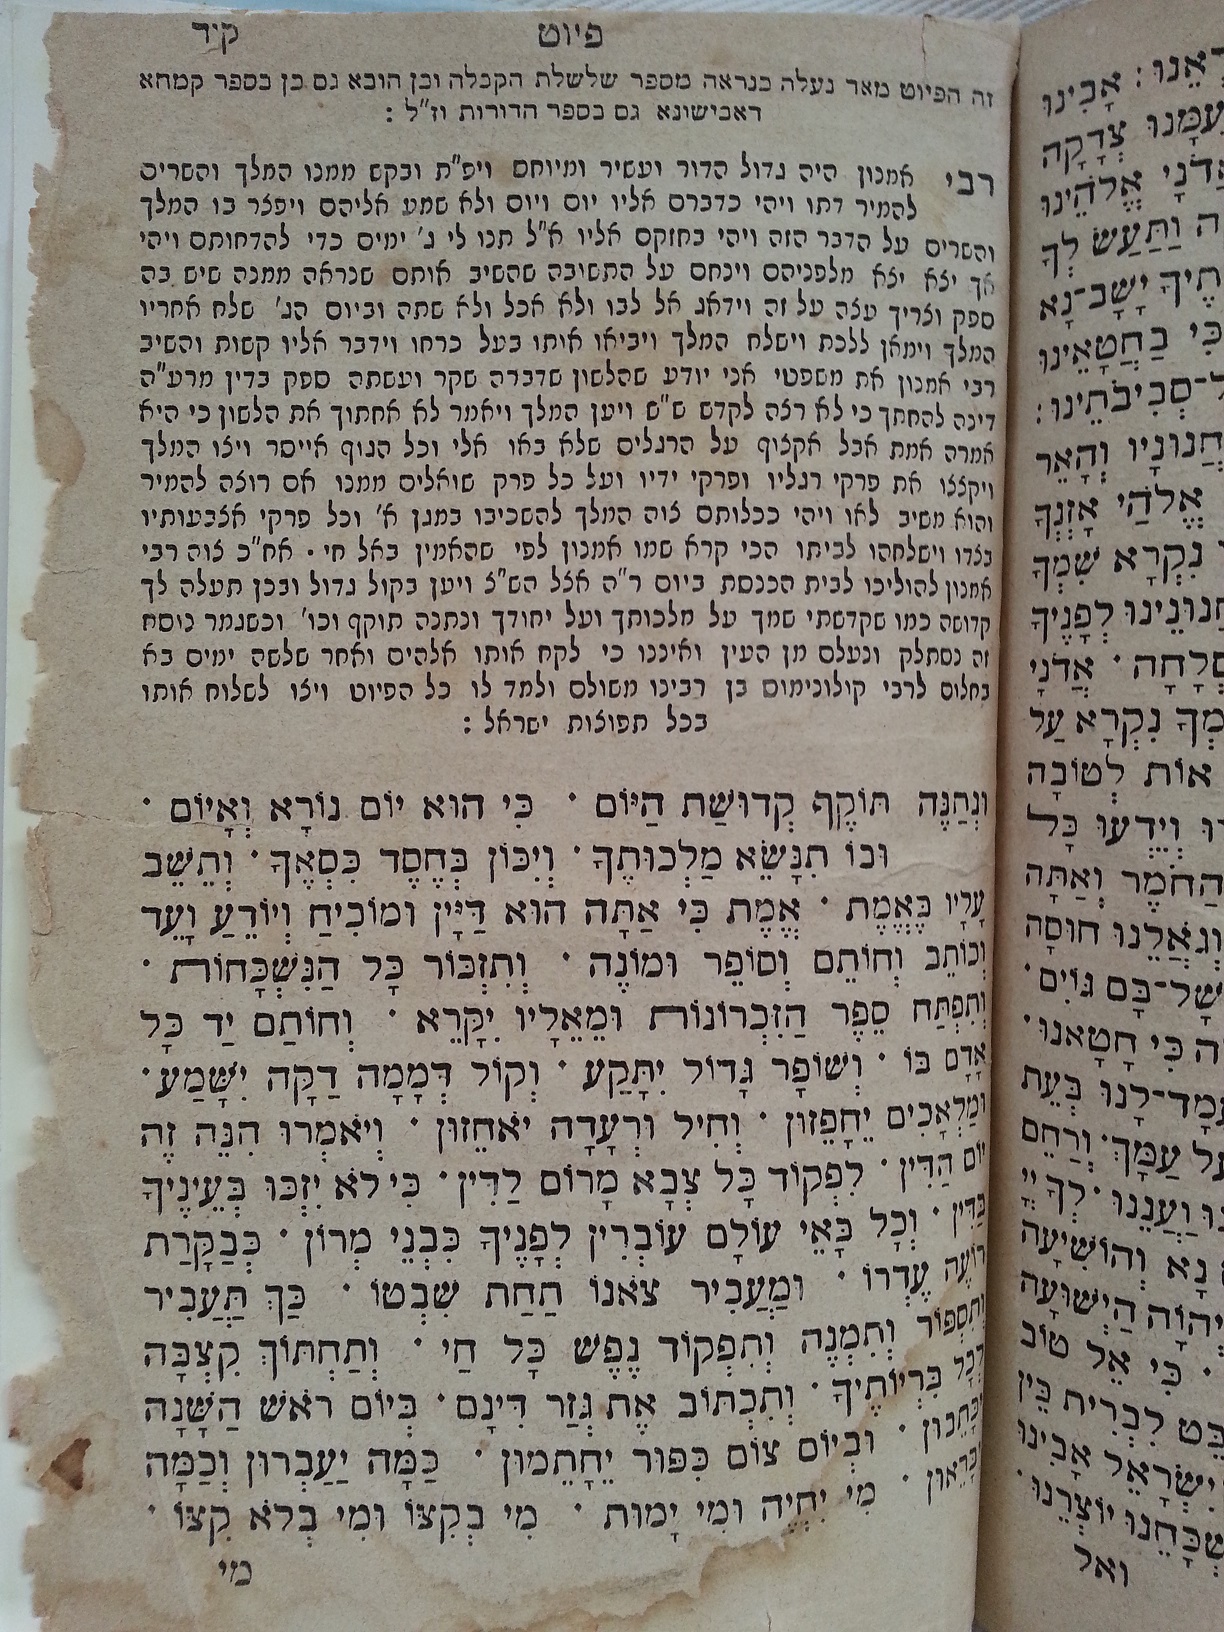 פיוט קיד
זה הפיוט מאד נעלה כנראה מספר שלשלת הקבלה וכן הובא גם כן בספר קמחא
דאבישונא גם בספר הדורות וז"ל :
רבי אמנון היה גדול הדור ועשיר ומיוחס ויפ"ת ובקש ממנו המלך והשרים
להמיר דתו ויהי כדברם אליו יום ויום ולא שמע אליהם ויפצר בו המלך
והשרים על הדבר הזה ויהי בחזקם אליו א"ל תנו לי ג' ימים כדי להדחותם ויהי
אך יצא יצא מלפניהם וינחם על התשובה שהשיב אותם שנראה ממנה שיש בה
ספק וצריך עצה על זה וידאג אל לבו ולא אכל ולא שתה וביום הג' שלח אחריו
המלך וימאן ללכת וישלח המלך ויביאו אותו בעל כרחו וידבר אליו קשות והשיב
רבי אמנון את משפטי אני יודע שהלשון שדברה שקר ועשתה ספק בדין מרע"ה
דינה להחתך כי לא רצה לקדש ש"ש ויען המלך ויאמר לא אחתוך את הלשון כי היא
אמרה אמת אבל אקצוף על הרגלים שלא באו אלי וכל הגוף אייסר ויצו המלך
ויקצצו את פרקי רגליו ופרקי ידיו ועל כל פרק שואלים ממנו אם רוצה להמיר
והוא משיב לאו ויהי ככלותם צוה המלך להשכיבו במגן א' וכל פרקי אצבעותיו
בצדו וישלחהו לביתו הכי קרא שמו אמנון לפי שהאמין באל חי · אח"כ צוה רבי
אמנון להוליכו לבית הכנסת ביום ר"ה אצל הש"צ ויען בקול גדול ובכן תעלה לך
קדושה כמו שקדשתי שמך על מלכותך ועל יחודך ונתנה תוקף וכו' וכשגמר נוסח
זה נסתלק ונעלם מן העין ואיננו כי לקח אותו אלהים ואחר שלשה ימים בא
בחלום לרבי קולונימוס בן רבינו משולם ולמד לו כל הפיוט ויצו לשלוח אותו
בכל תפוצות ישראל :
וּנְתַנֶּה תּוֹקֶף קְדוּשַׁת הַיּוֹם · כִּי הוּא יוֹם נוֹרָא וְאָיוֹם ·
וּבוֹ תִנָּשֵׂא מַלְכוּתֶךָ · וְיִכּוֹן בְּחֶסֶד כִּסְאֶךָ · וְתֵשֵׁב
עָלָיו בֶּאֱמֶת · אֱמֶת כִּי אַתָּה הוּא דַּיָּין וּמוֹכִיחַ וְיוֹדֵעַ וָעֵד
וְכוֹתֵב וְחוֹתֵם וְסוֹפֵר וּמוֹנֶה · וְתִזְכּוֹר כָּל הַנִּשְׁכָּחוֹת ·
וְתִפְתַּח סֵפֶר הַזִּכְרוֹנוֹת וּמֵאֵלָיו יִקָּרֵא · וְחוֹתַם יַד כָּל
אָדָם בּוֹ · וְשׁוֹפָר גָּדוֹל יִתָּקַע · וְקוֹל דְּמָמָה דַקָּה יִשָּׁמַע ·
וּמַלְאָכִים יֵחָפֵזוּן · וְחִיל וּרְעָדָה יֹאחֵזוּן · וְיֹאמְרוּ הִנֵּה זֶה
יוֹם הַדִּין · לִפְקוֹד כָּל צְבָא מָרוֹם לַדִּין · כִּי לֹא יִזְכּוּ בְּעֵינֶיךָ
בַּדִּין · וְכָל בָּאֵי עוֹלָם עוֹבְרִין לְפָנֶיךָ כִּבְנֵי מְרוֹן · כְּבַקָּרַת
רוֹעֶה עֶדְרוֹ · וּמַעֲבִיר צֹאנוֹ תַּחַת שִׁבְטוֹ · כַּךְ תַּעֲבִיר
וְתִסְפּוֹר וְתִמְנֶה וְתִפְקוֹד נֶפֶשׁ כָּל חַי · וְתַחְתּוֹךְ קִצְבָּה
לְכָל בְּרִיוֹתֶיךָ · וְתִכְתּוֹב אֶת גְּזַר דִּינָם · בְּיוֹם רֹאשׁ הַשָּׁנָה
יִכָּתֵבוּן · וּבְיוֹם צוֹם כִּפּוּר יֵחָתֵמוּן · כַּמָּה יַעַבְרוּן וְכַמָּה
יִבָּרֵאוּן · מִי יִחְיֶה וּמִי יָמוּת · מִי בְקִצּוֹ וּמִי בְּלֹא קִצּוֹ ·
מי
אָבִינוּ
עִמָּנוּ צְדָקָה
אֲדֹנָי אֱלֹהֵינוּ
וַתַּעַשׂ לְךָ
יָשָׁב־נָא
כִּי בַחֲטָאֵינוּ
סְבִיבֹתֵינוּ :
תַּחֲנוּנָיו וְהָאֵר
אֱלֹהַי אָזְנְךָ
נִקְרָא שִׁמְךָ
תַחֲנוּנֵינוּ לְפָנֶיךָ
סְלָחָה · אֲדֹנָי
נִקְרָא עַל
אוֹת לְטוֹבָה
וְיֵדְעוּ כָּל
הַחֹמֶר וְאַתָּה
וְגֹאֲלֵנוּ חוּסָה
בָּם גּוֹיִם ·
כִּי חָטָאנוּ ·
לָנוּ בְּעֵת
עַל עַמָּךְ · וְרַחֵם
וַעֲנֵנוּ · לְךָ יְיָ
נָא וְהוֹשִׁיעָה
יְהוָֹה הַיְשׁוּעָה
· כִּי אֵל טוֹב
הַבֵּט לִבְרִית בֵּין
יִשְׂרָאֵל אָבִינוּ
שְׁכָּחֵנוּ יוֹצְרֵנוּ ·
ואל